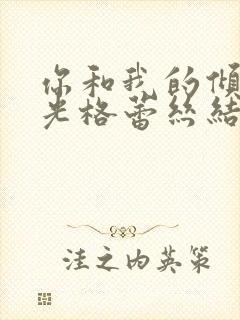 你和我的倾
光格蕾丝结
洼之内英策